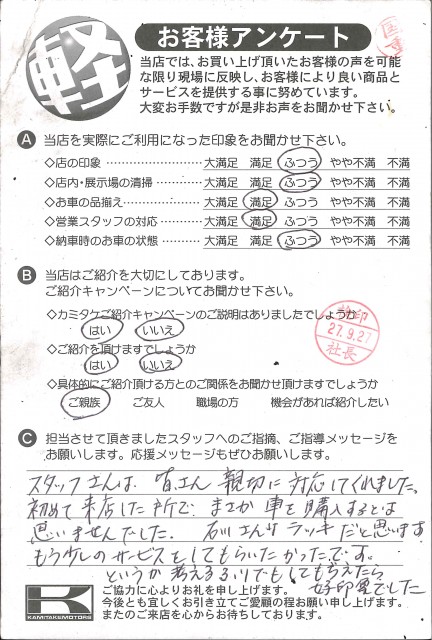 軽
お客様アンケート
当店では、お買い上げ頂いたお客様の声を可能
な限り現場に反映し、お客様により良い商品と
サービスを提供する事に努めています。
大変お手数ですが是非お声をお聞かせ下さい。
A 当店を実際にご利用になった印象をお聞かせ下さい。
◇店の印象 大満足 満足 ふつう やや不満 不満
◇店内・展示場の清掃 大満足 満足 ふつう やや不満 不満
◇お車の品揃え 大満足 満足 ふつう やや不満 不満
◇営業スタッフの対応 大満足 満足 ふつう やや不満 不満
◇納車時のお車の状態 大満足 満足 ふつう やや不満 不満
B 当店はご紹介を大切にしております。
ご紹介キャンペーンについてお聞かせ下さい。
◇カミタケご紹介キャンペーンのご説明はありましたでしょうか
はい いいえ
27.9.27
社長
◇ご紹介を頂けますでしょうか
はい いいえ
◇具体的にご紹介頂ける方とのご関係をお聞かせ頂けますでしょうか
ご親族 ご友人 職場の方 機会があれば紹介したい
C 担当させて頂きましたスタッフへのご指摘、ご指導メッセージを
お願いします。応援メッセージもぜひお願いします。
スタッフさんは、皆さん親切に対応してくれました。
初めて来店した所で、まさか車を購入するとは
思いませんでした。石川さんはラッキーだと思います
もう少しのサービスをしてもらいたかったです。
というか考えるふりでもしてもらえたら
好印象でした
KAMITAKEMOTORS
ご協力に心よりお礼を申し上げます。
今後とも宜しくお引き立てご愛顧の程お願い申し上げます。
またのご来店を心からお待ちしております。